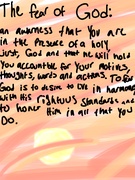 The fear of God:
an awareness that you are
in the presence of a holy,
Just, God and that he will hold
you accountable for your motives,
thoughts, words and actions. To fear
God is to desire to live in harmony
with his rightuous standards and
to honor Him in all that you
Do.